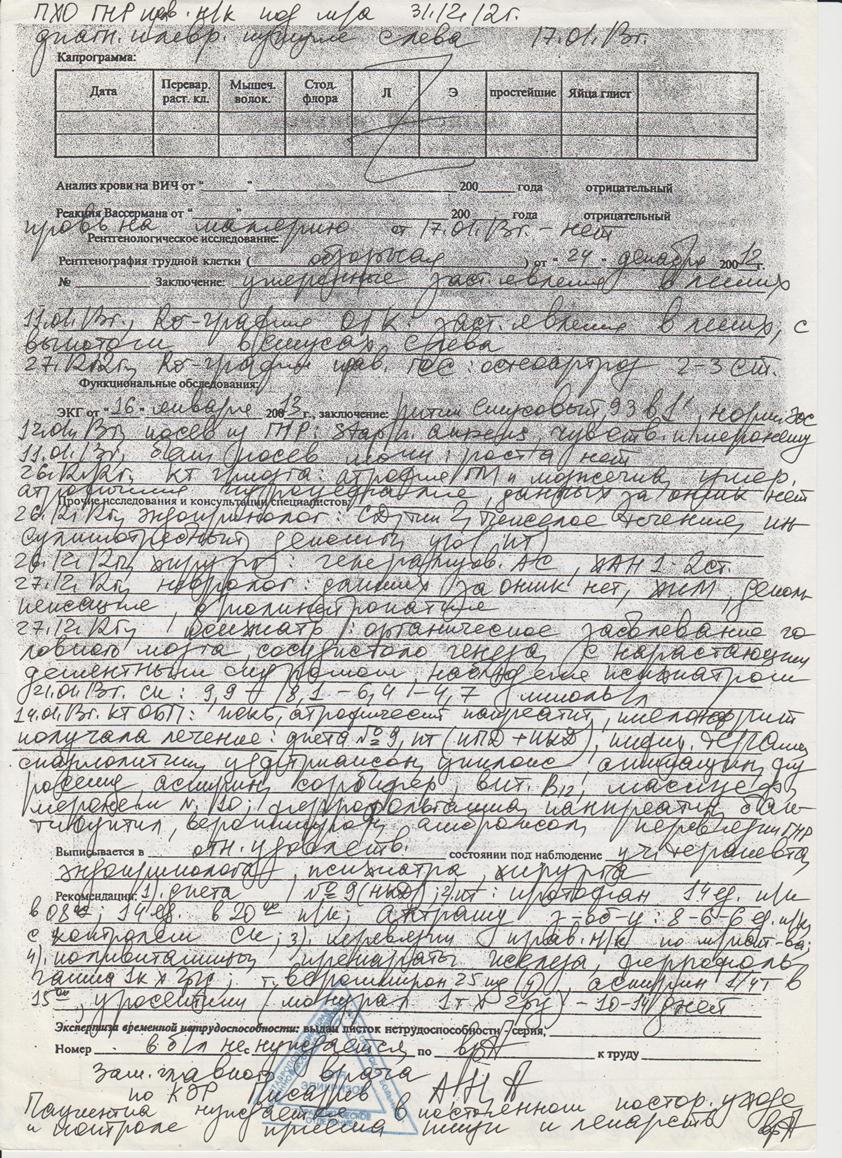 ПХО ГНР прав. н/к под м/а 31.12.12г.
диагн. плевр. пункция слева 17.01.13г.
Капрограмма:
Дата Перевар. раст. кл. Мышеч. волок. Стод. флора Л Э простейшие Яйца глист
Анализ крови на ВИЧ от "____" ____ 200__ года отрицательный
Реакция Вассермана от "____" ____ 200__ года отрицательный
кровь на малярию от 17.01.13г. - нет
Рентгенологическое исследование:
Рентгенография грудной клетки ( обзорная ) от "24" декабря 2012г.
№ ____ Заключение: умеренные заст. явления в легких
11.01.13г., Rо-графия ОГК: заст. явления в легких, с
выпотом в синусах, слева
27.12.12г., Rо-графия прав. : остеоартроз 2-3 ст.
Функциональные обследования:
ЭКГ от "16" января 2013г., заключение: ритм синусовый 93 в 1', норм. ЭОС
12.01.13г. посев из ГНР: Staph. aureus, чувств. к меронему
11.01.13г. посев мочи: роста нет
26.12.12г. КТ мозга: атрофия ГМ и мозжечка, умер.
гидроцефалия, данных за ОНМК нет
Прочие исследования и консультации специалистов
26.12.12г. эндокринолог: СД, тип 2, тяжелое течение, ин
сулинпотребный,
26.12.12г., хирург: генерализов. АС, ХАН 1-2 ст.
27.12.12г., невролог: данных за ОНМК нет, ХИМ, деком
пенсация,
27.12.12г., психиатр: органическое заболевание го
ловного мозга, сосудистого генеза, с нарастающим
дементным синдромом, наблюдение психиатром
21.01.13г. СК: 9,9 - 8,1 - 6,4 - 4,7 ммоль/л
14.01.13г. КТ ОБП: атрофический панкреатит, пиелонефрит
получала лечение: диета №9, ИТ (ИПД + ИКД), инфуз. терапия,
спиронолактон, цефтриаксон, амикацин, фу
росемид, аспирин, сорбифер, вит. В12,
меронем № 10, панкреатин,
верошпирон, амброксол, перевязки ГНР
Выписывается в отн. удовлетв. состоянии под наблюдение уч. терапевта,
эндокринолога, психиатра, хирурга
Рекомендации: 1). диета №9 (НКД); 2. ИТ: протафан 14 ед. п/к
в 08 00; 14 ед. в 20 00 п/к; актрапид з-об-у: 8-6-6 ед. п/к,
с контролем СК; 3). перевязки прав. н/к по м/жит-ва;
4). поливитамины, препараты железа,
1к х 2р/с; т. верошпирон 25 мг (у), аспирин 1/4т в
15 00, уросептики (монурал 1т х 2р/) - 10-14 дней
Экспертиза временной нетрудоспособности: выдан листок нетрудоспособности серия,
Номер в б/л не нуждается с ____ по ____ к труду
Зам. главного врача
по КЭР Писарев
Пациентка нуждается в постоянном постор. уходе
и контроле приема пищи и лекарств